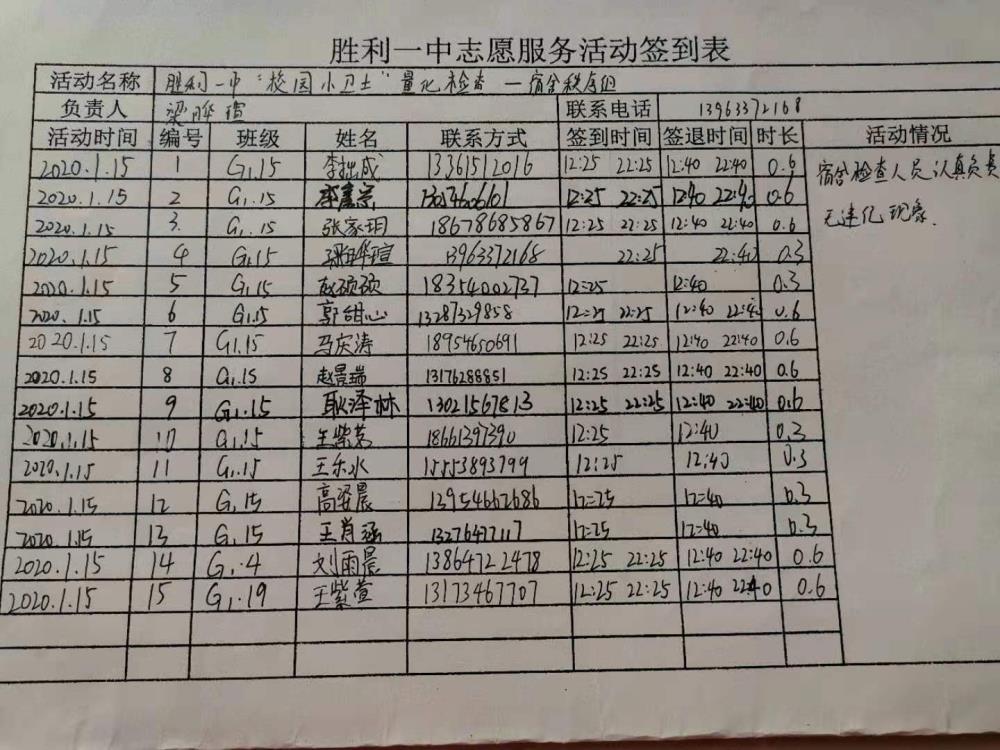 胜利一中志愿服务活动签到表
活动名称 胜利一中"校园小卫士"量化检查—宿舍秩序组
负责人 梁晔瑄 联系电话 13963372168
活动时间 编号 班级 姓名 联系方式 签到时间 签退时间 时长 活动情况
2020.1.15 1 G1.15 李拙成 13361512016 12:25 22:25 12:40 22:40 0.6 宿舍检查人员认真负责
2020.1.15 2 G1.15 12:25 22:25 12:40 22:40 0.6
无违纪现象.
2020.1.15 3 G1.15 张家玥 18678685867 12:25 22:25 12:40 22:40 0.6
2020.1.15 4 G1.15 梁晔瑄 13963372168 22:25 22:40 0.3
2020.1.15 5 G1.15 赵硕硕 18354002737 12:25 12:40 0.3
2020.1.15 6 G1.15 郭甜心 13287329858 12:25 22:25 12:40 22:40 0.6
2020.1.15 7 G1.15 马庆涛 18954650691 12:25 22:25 12:40 22:40 0.6
2020.1.15 8 G1.15 赵景瑞 13176288851 12:25 22:25 12:40 22:40 0.6
2020.1.15 9 G1.15 耿泽林 13021567813 12:25 22:25 12:40 22:40 0.6
2020.1.15 10 G1.15 18661397390 12:25 12:40 0.3
2020.1.15 11 G1.15 王乐水 15553893799 12:25 12:40 0.3
2020.1.15 12 G1.15 高梁晨 13954662686 12:25 12:40 0.3
2020.1.15 13 G1.15 王肖涵 13276477117 12:25 12:40 0.3
2020.1.15 14 G1.4 刘雨晨 13864722478 12:25 22:25 12:40 22:40 0.6
2020.1.15 15 G1.19 王紫萱 13173467707 12:25 22:25 12:40 22:40 0.6